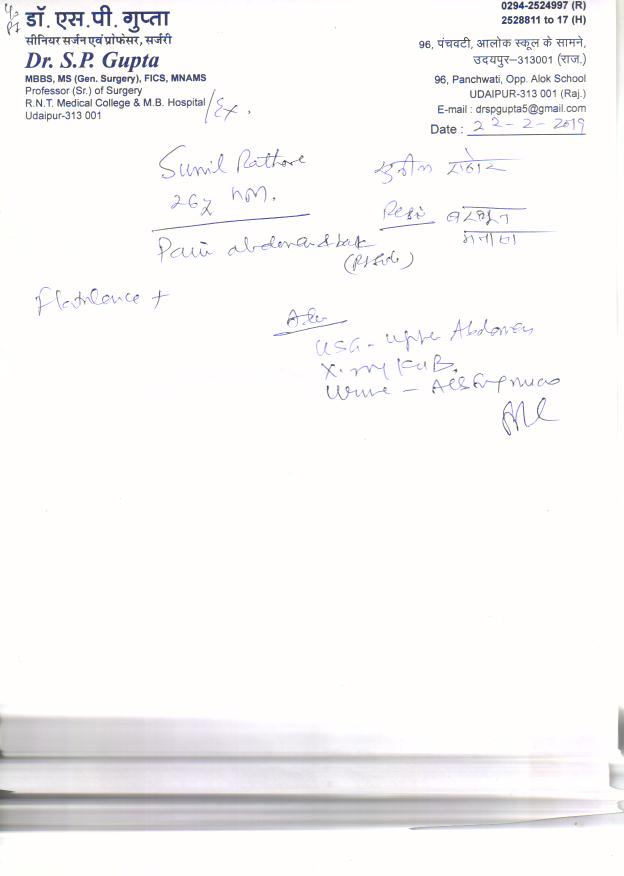 डॉ. एस.पी. गुप्ता
सीनियर सर्जन एवं प्रोफेसर, सर्जरी
Dr. S.P. Gupta
MBBS, MS (Gen. Surgery), FICS, MNAMS
Professor (Sr.) of Surgery
R.N.T. Medical College & M.B. Hospital /Ex.
Udaipur-313 001
0294-2524997 (R)
2528811 to 17 (H)
96, पंचवटी, आलोक स्कूल के सामने,
उदयपुर–313001 (राज.)
96, Panchwati, Opp. Alok School
UDAIPUR-313 001 (Raj.)
E-mail : drspgupta5@gmail.com
Date : 22-2-2019
Sunil Rathore
26y
सुनील राठोर
Pain abdomen & back
(Rt side)
Flatulence +
USG - Upper Abdomen
X-ray KUB.
Urine -